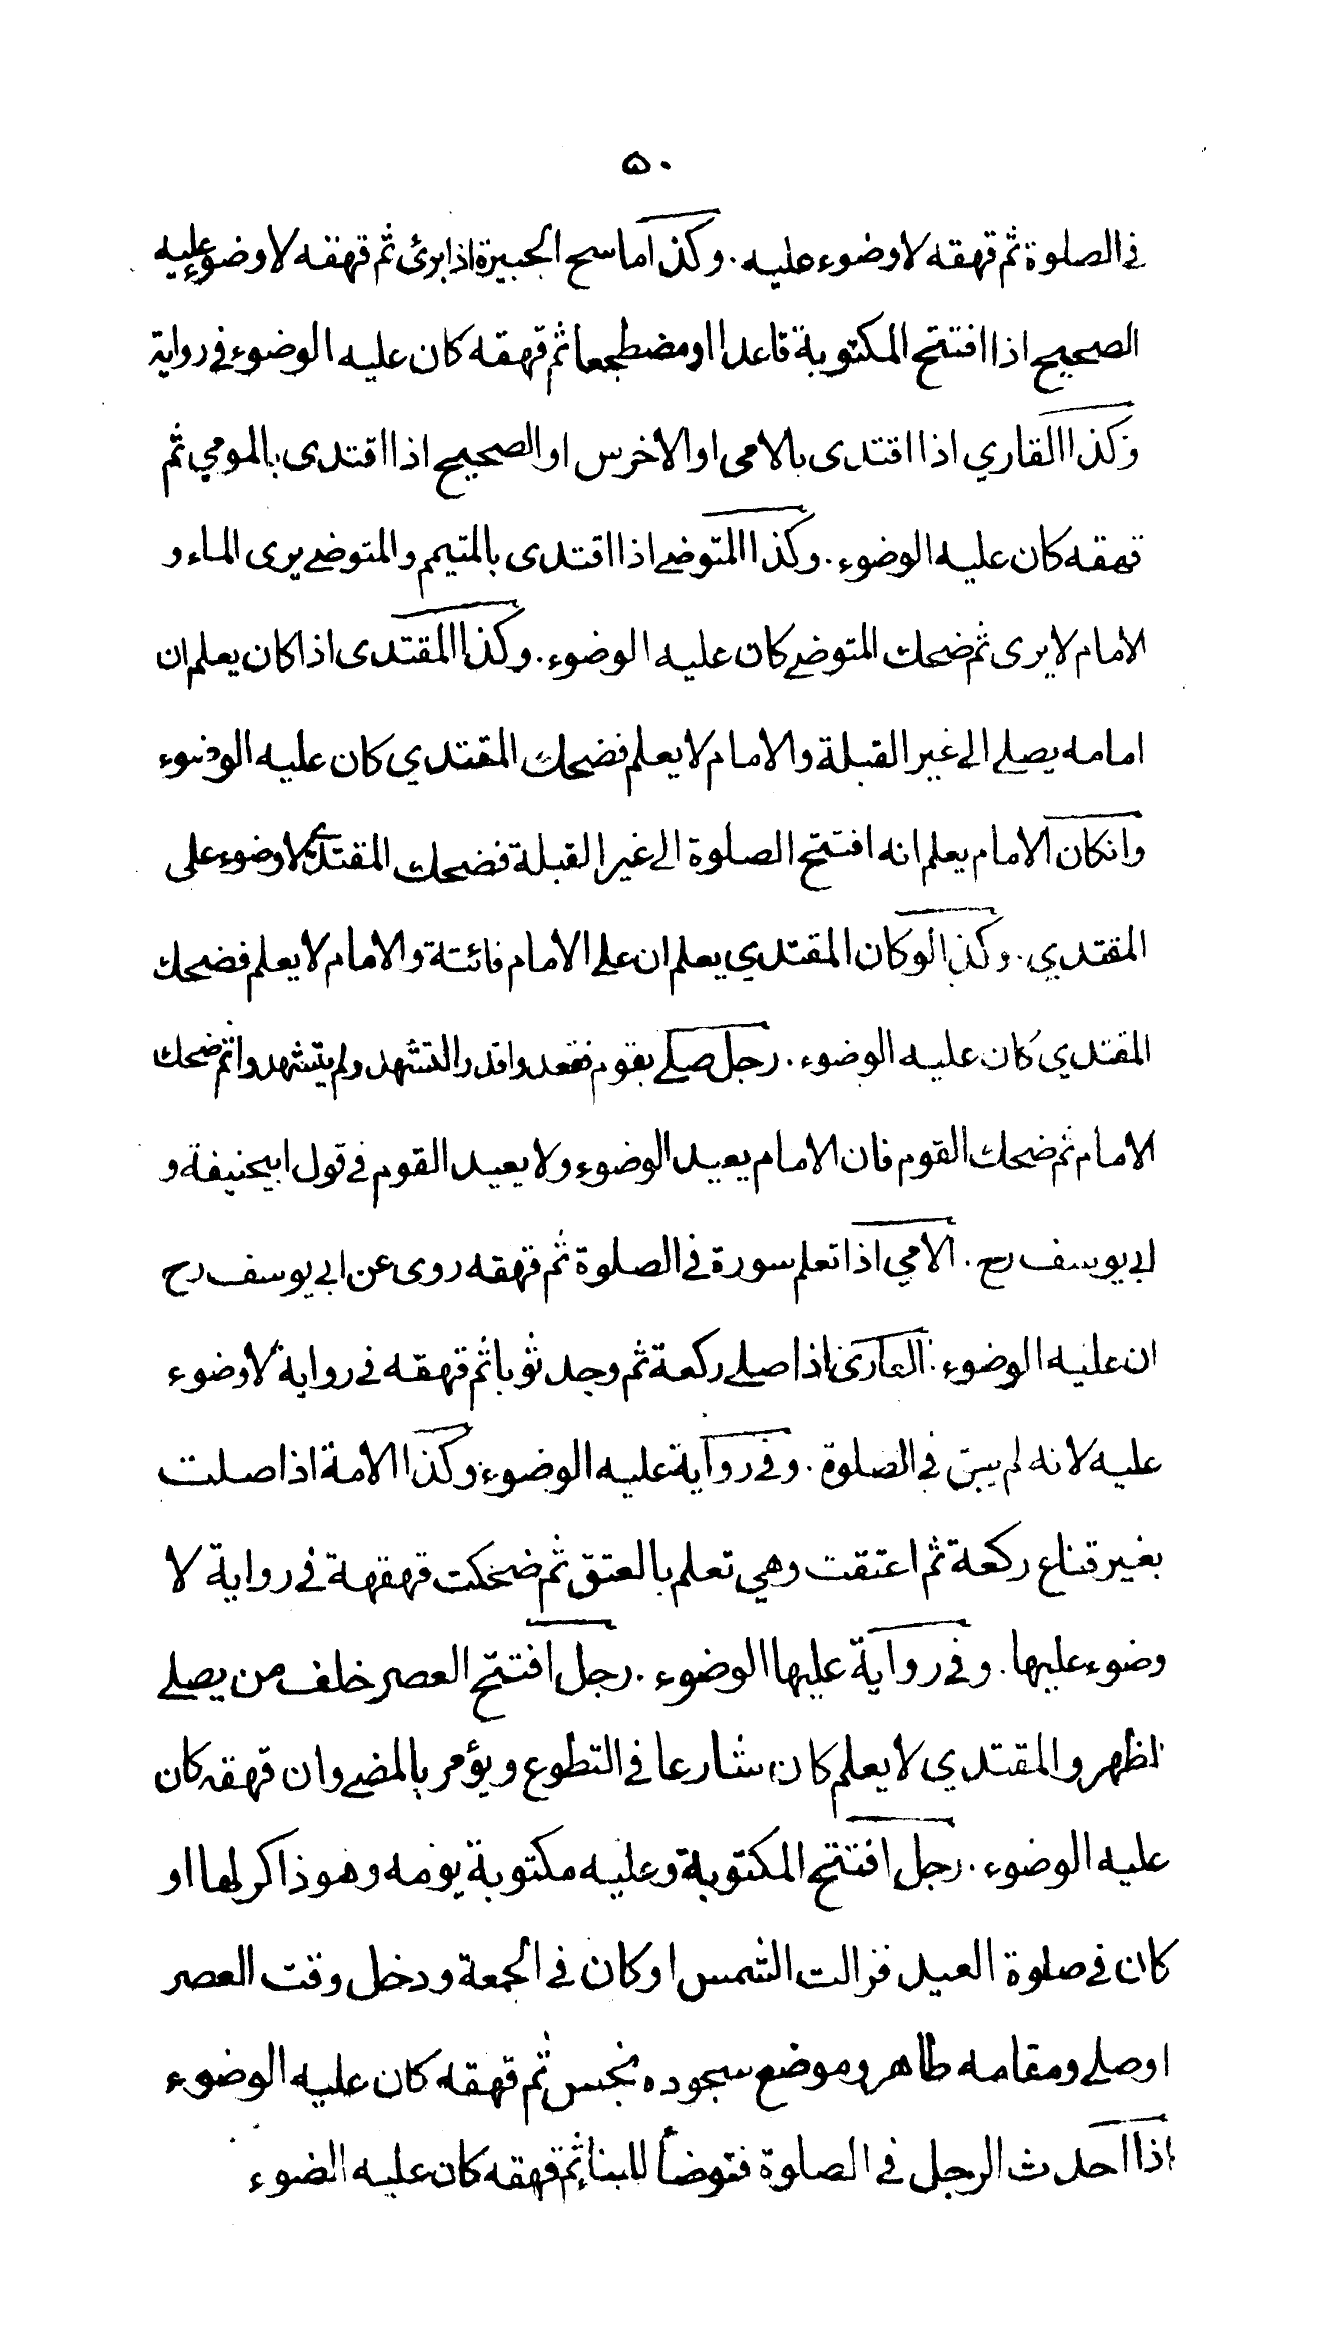 ۵۰
في الصلوة ثم قهقه لا وضوء عليه . وكذا ماسح الجبيرة اذا برئ ثم قهقه لا وضوء عليه
الصحيح اذا افتتح المكتوبة قاعدا او مضطجعا ثم قهقه كان عليه الوضوء في رواية
وكذا القاري اذا اقتدى بالامى او الاخرس او الصحيح اذا اقتدى بالمومي ثم
قهقه كان عليه الوضوء . وكذا المتوضي اذا اقتدى بالمتيمم والمتوضي يرى الماء و
الامام لا يرى ثم ضحك المتوضي كان عليه الوضوء . وكذا المقتدى اذا كان يعلم ان
امامه يصلي الى غير القبلة والامام لا يعلم فضحك المقتدي كان عليه الوضوء
وانكان الامام يعلم انه افتتح الصلوة الى غير القبلة فضحك المقتدي لا وضوء على
المقتدي . وكذا لو كان المقتدي يعلم ان على الامام فائتة والامام لا يعلم فضحك
المقتدي كان عليه الوضوء . رجل صلى بقوم فقعدوا قدر التشهد ولم يتشهدوا ثم ضحك
الامام ثم ضحك القوم فان الامام يعيد الوضوء ولا يعيد القوم في قول ابيحنيفة و
ابي يوسف رح . الامي اذا تعلم سورة في الصلوة ثم قهقه روى عن ابي يوسف رح
ان عليه الوضوء . العارى اذا صلى ركعة ثم وجد ثوبا ثم قهقه في رواية لا وضوء
عليه لانه لم يبق في الصلوة . وفي رواية عليه الوضوء وكذا الامة اذا صلت
بغير قناع ركعة ثم اعتقت وهي تعلم بالعتق ثم ضحكت قهقهة في رواية لا
وضوء عليها . وفي رواية عليها الوضوء . رجل افتتح العصر خلف من يصلي
لظهر والمقتدي لا يعلم كان شارعا في التطوع ويؤمر بالمضي وان قهقه كان
عليه الوضوء . رجل افتتح المكتوبة وعليه مكتوبة يومه وهو ذاكر لها او
كان في صلوة العيد فزالت الشمس او كان في الجمعة ودخل وقت العصر
او صلى ومقامه طاهر وموضع سجوده نجس ثم قهقه كان عليه الوضوء
اذا احدث الرجل في الصلوة فتوضأ للبناء ثم قهقه كان عليه الضوء